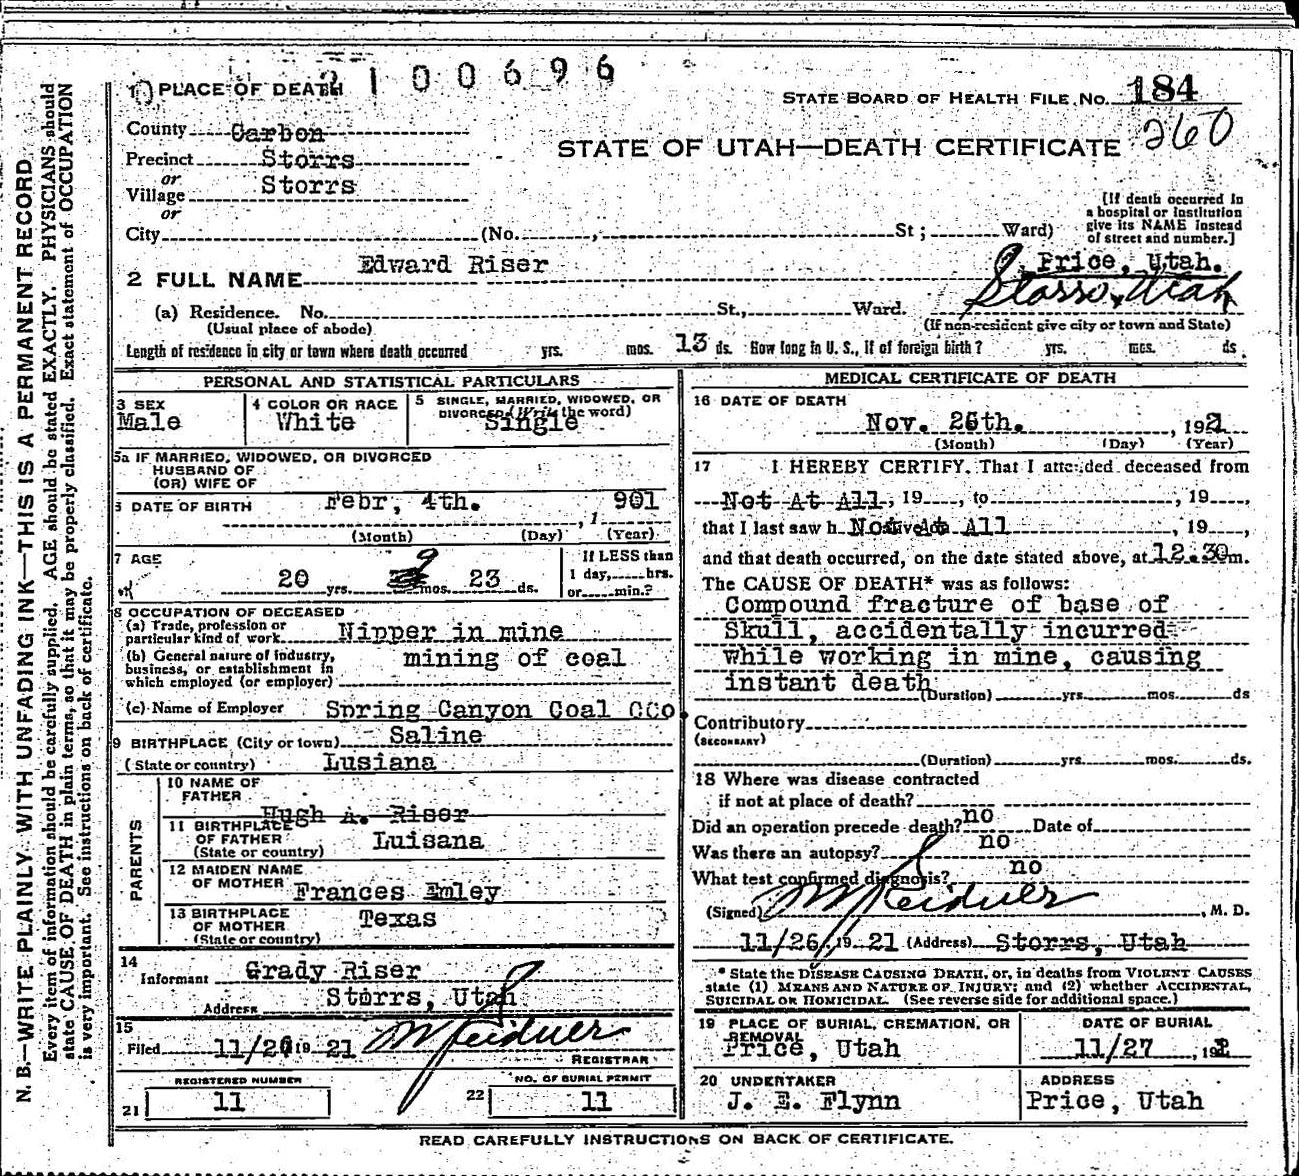 2100696
1 PLACE OF DEATH
STATE BOARD OF HEALTH FILE No. 184
County Carbon
260
STATE OF UTAH—DEATH CERTIFICATE
Precinct Storrs
or
Village Storrs
or
[If death occurred in a hospital or institution give its NAME instead of street and number.]
City (No. , St ; Ward)
2 FULL NAME Edward Riser
Price, Utah.
Storrs, Utah
(a) Residence. No. St., Ward.
(Usual place of abode)
(If non-resident give city or town and State)
Length of residence in city or town where death occurred yrs. mos. 13 ds. How long in U. S., if of foreign birth? yrs. mos. ds.
PERSONAL AND STATISTICAL PARTICULARS
3 SEX
Male
4 COLOR OR RACE
White
5 SINGLE, MARRIED, WIDOWED, OR DIVORCED (Write the word)
Single
5a IF MARRIED, WIDOWED, OR DIVORCED
HUSBAND OF
(OR) WIFE OF
6 DATE OF BIRTH Febr, 4th. , 1 901
(Month) (Day) (Year)
7 AGE
20 yrs. 9 mos. 23 ds.
If LESS than 1 day, hrs. or min.?
8 OCCUPATION OF DECEASED
(a) Trade, profession or particular kind of work Nipper in mine
(b) General nature of industry, business, or establishment in which employed (or employer) mining of coal
(c) Name of Employer Spring Canyon Coal CCo.
9 BIRTHPLACE (City or town) Saline
(State or country) Lusiana
PARENTS
10 NAME OF FATHER
Hugh A. Riser
11 BIRTHPLACE OF FATHER (State or country) Luisana
12 MAIDEN NAME OF MOTHER Frances Emley
13 BIRTHPLACE OF MOTHER (State or country) Texas
14
Informant Grady Riser
Address Storrs, Utah
15
Filed 11/26 19 21
REGISTRAR
REGISTERED NUMBER
21 11
NO. OF BURIAL PERMIT
22 11
MEDICAL CERTIFICATE OF DEATH
16 DATE OF DEATH
Nov. 26th. , 192
(Month) (Day) (Year)
17 I HEREBY CERTIFY, That I attended deceased from
Not At All, 19 , to , 19 ,
that I last saw h Not At All , 19 ,
and that death occurred, on the date stated above, at 12.30m.
The CAUSE OF DEATH* was as follows:
Compound fracture of base of
Skull, accidentally incurred
while working in mine, causing
instant death
(Duration) yrs. mos. ds
Contributory
(SECONDARY)
(Duration) yrs. mos. ds.
18 Where was disease contracted
if not at place of death?
Did an operation precede death? no Date of
Was there an autopsy? no
What test confirmed diagnosis? no
(Signed) , M. D.
11/26, 19 21 (Address) Storrs, Utah
* State the DISEASE CAUSING DEATH, or, in deaths from VIOLENT CAUSES
state (1) MEANS AND NATURE OF INJURY; and (2) whether ACCIDENTAL,
SUICIDAL OR HOMICIDAL. (See reverse side for additional space.)
19 PLACE OF BURIAL, CREMATION, OR REMOVAL
Price, Utah
DATE OF BURIAL
11/27 , 192
20 UNDERTAKER
J. E. Flynn
ADDRESS
Price, Utah
READ CAREFULLY INSTRUCTIONS ON BACK OF CERTIFICATE.
N. B.—WRITE PLAINLY, WITH UNFADING INK—THIS IS A PERMANENT RECORD
Every item of information should be carefully supplied. AGE should be stated EXACTLY. PHYSICIANS should
state CAUSE OF DEATH in plain terms, so that it may be properly classified. Exact statement of OCCUPATION
is very important. See instructions on back of certificate.